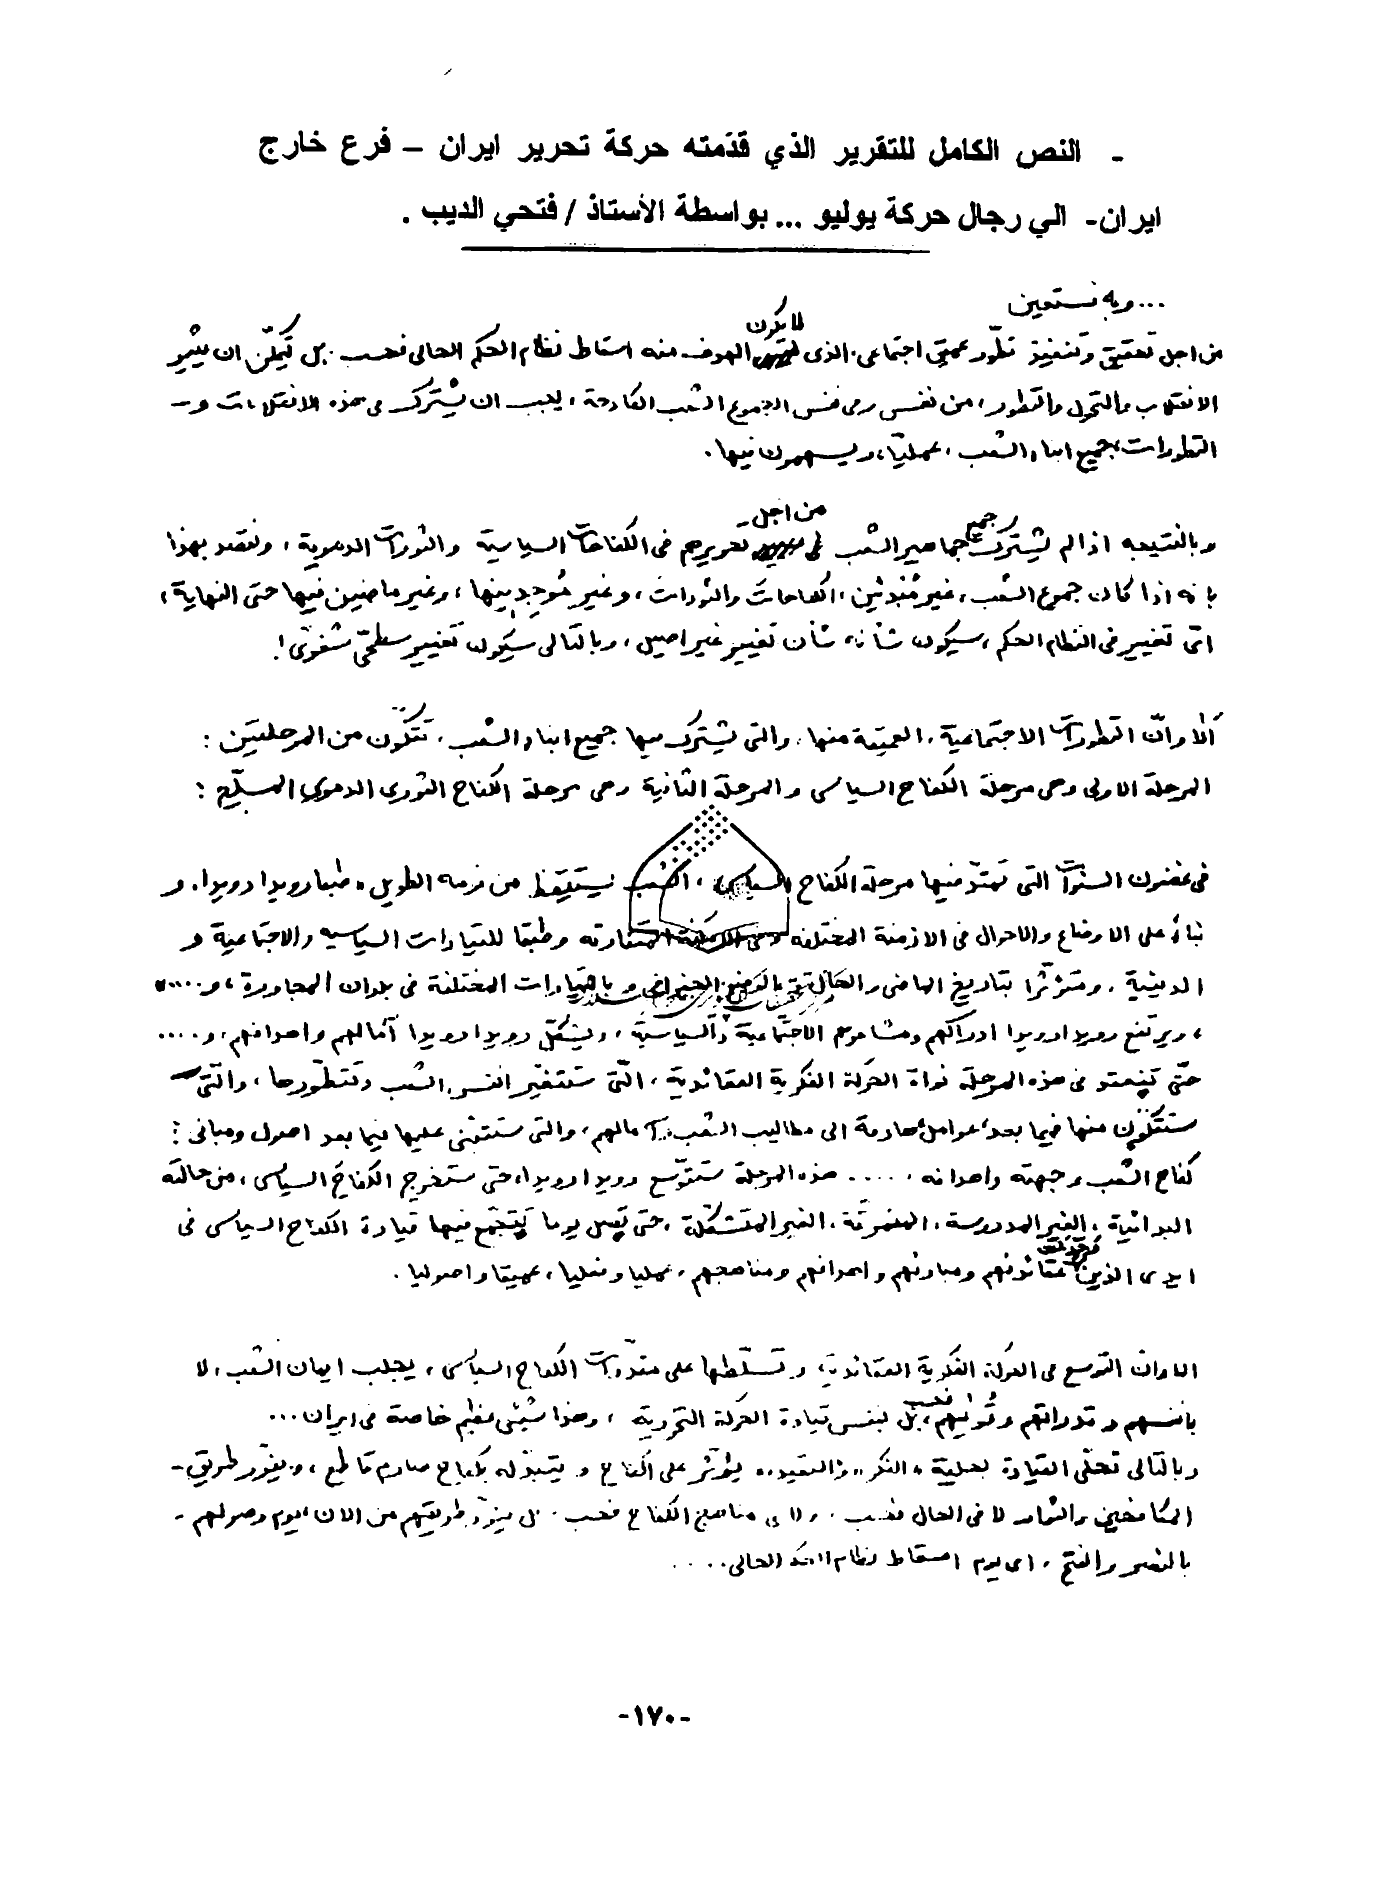 - النص الكامل للتقرير الذي قدّمته حركة تحرير ايران - فرع خارج
ايران - الي رجال حركة يوليو ... بواسطة الأستاذ / فتحي الديب .
... وبه نستعين
لا يكون
من اجل تحقيق وتنفيذ تطوّر عميق اجتماعى الذى الهدف منه اسقاط نظام الحكم الحالى فحسب . بل يمكن ان يثير
الانقلاب والتحول والتطور ، من نفس وفى نفس الجموع الشعب الكادحة ، يجب ان يشترك فى هذه الانقلابات و -
التطورات ، جميع ابناء الشعب ، عمليّا ، ويسهمون فيها .
من اجل -
جميع
وبالنتيجه اذا لم يشترك جماهير الشعب تحريرهم فى الكفاحات السياسية والثورات الدموية ، ونقصد بهذا
بانه اذا كان جموع الشعب ، غير ، الكفاحات والثورات ، وغير موجودين فيها ، وغير ماضين فيها حتى النهاية ،
اىّ تغيير فى النظام الحكم ، سيكون شأنه شأن تغيير غير اصيل ، وبالتالى سيكون تغيير سطحىّ !
الا وانّ التطورات الاجتماعية ، العميقة منها ، والتى يشترك فيها جميع ابناء الشعب ، تتكوّن من المرحلتين :
المرحلة الاولى وهى مرحلة الكفاح السياسى والمرحلة الثانية وهى مرحلة الكفاح الثورى الدموى المسلّح :
فى غضون السنوات التى تمتدّ فيها مرحلة الكفاح السياسى ، الشعب يستيقظ من نومه الطويل ، طبعا رويدا رويدا . و
بناءً على الاوضاع والاحوال فى الازمنة المختلفه وفى الامكنة المتفاوته وطبقا للتيارات السياسيه والاجتماعية و
الدينية ، ومتأثرا بتاريخ الماضى والحال وبالوضع الجغرافى و بالتيارات المختلفة فى بلدان المجاورة ، و .....
، ويرتفع رويدا رويدا ادراكهم ومشاعرهم الاجتماعية والسياسية ، ويشكّل رويدا رويدا آمالهم واهدافهم ، و ....
حتّى فى هذه المرحلة نواة الحركة الفكرية العقائدية ، الّتى ستتغيّر انفس الشعب وتتطوّرها ، والّتى
ستتكوّن منها فيما بعد ، عوامل هادمة الى مطاليب الشعب وآمالهم ، والتى ستبتنى عليها فيما بعد اصول ومبانى :
كفاح الشعب وجبهته واهدافه ، .... هذه المرحلة ستتوسّع رويدا رويدا ، حتى ستخرج الكفاح السياسى ، من حالته
البدائية ، الغير المدروسة ، المتفرّقة ، الغير المتشكّلة ، حتى تصل يوما يتجمّع فيها قيادة الكفاح السياسى فى
ايدى الذين عقائدهم ومبادئهم واهدافهم ومناهجهم ، عمليا وفعليا ، عميقا واصوليا .
الا وانّ التوسع فى الحركة الفكرية العقائدية ، وتسلّطها على مقدّرات الكفاح السياسى ، يجلب ايمان الشعب ، لا
فحسب
بانفسهم وقدراتهم وقُواهم ، بل لنفس قيادة الحركة التحررية ، وهذا شيئى عظيم خاصة فى ايران ...
وبالتالى تحلّى القيادة بحلية « الفكر » و « العقيدة » يؤثّر على الكفاح و يبدّله بكفاح صارم قاطع ، وينوّر طريق -
المكافحين والثوار لا فى الحال فحسب . ولا فى مناهج الكفاح فحسب . بل ينوّر طريقهم من الان ، يوم وصولهم -
بالنصر والفتح ، اى يوم اسقاط نظام الحكم الحالى ....
-١٧٠-